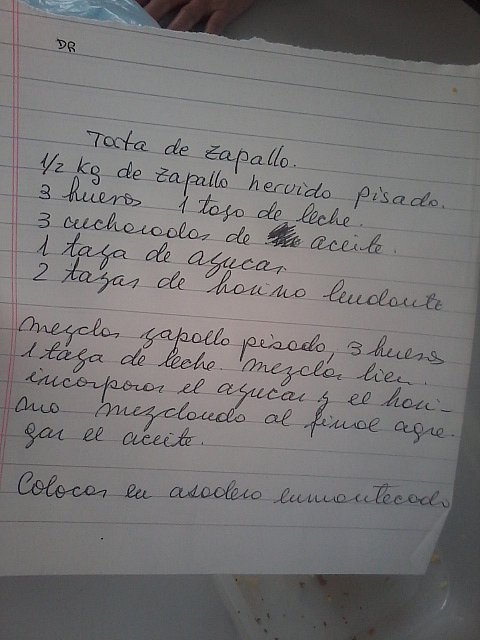 DR
Torta de zapallo.
1/2 kg de zapallo hervido pisado.
3 huevos 1 taza de leche.
3 cucharadas de aceite.
1 taza de azucar
2 tazas de harina leudante
mezclar zapallo pisado, 3 huevos
1 taza de leche. mezclar bien.
incorporar el azucar y el hari-
na mezclando al final agre-
gar el aceite.
Colocar en asadera enmantecada